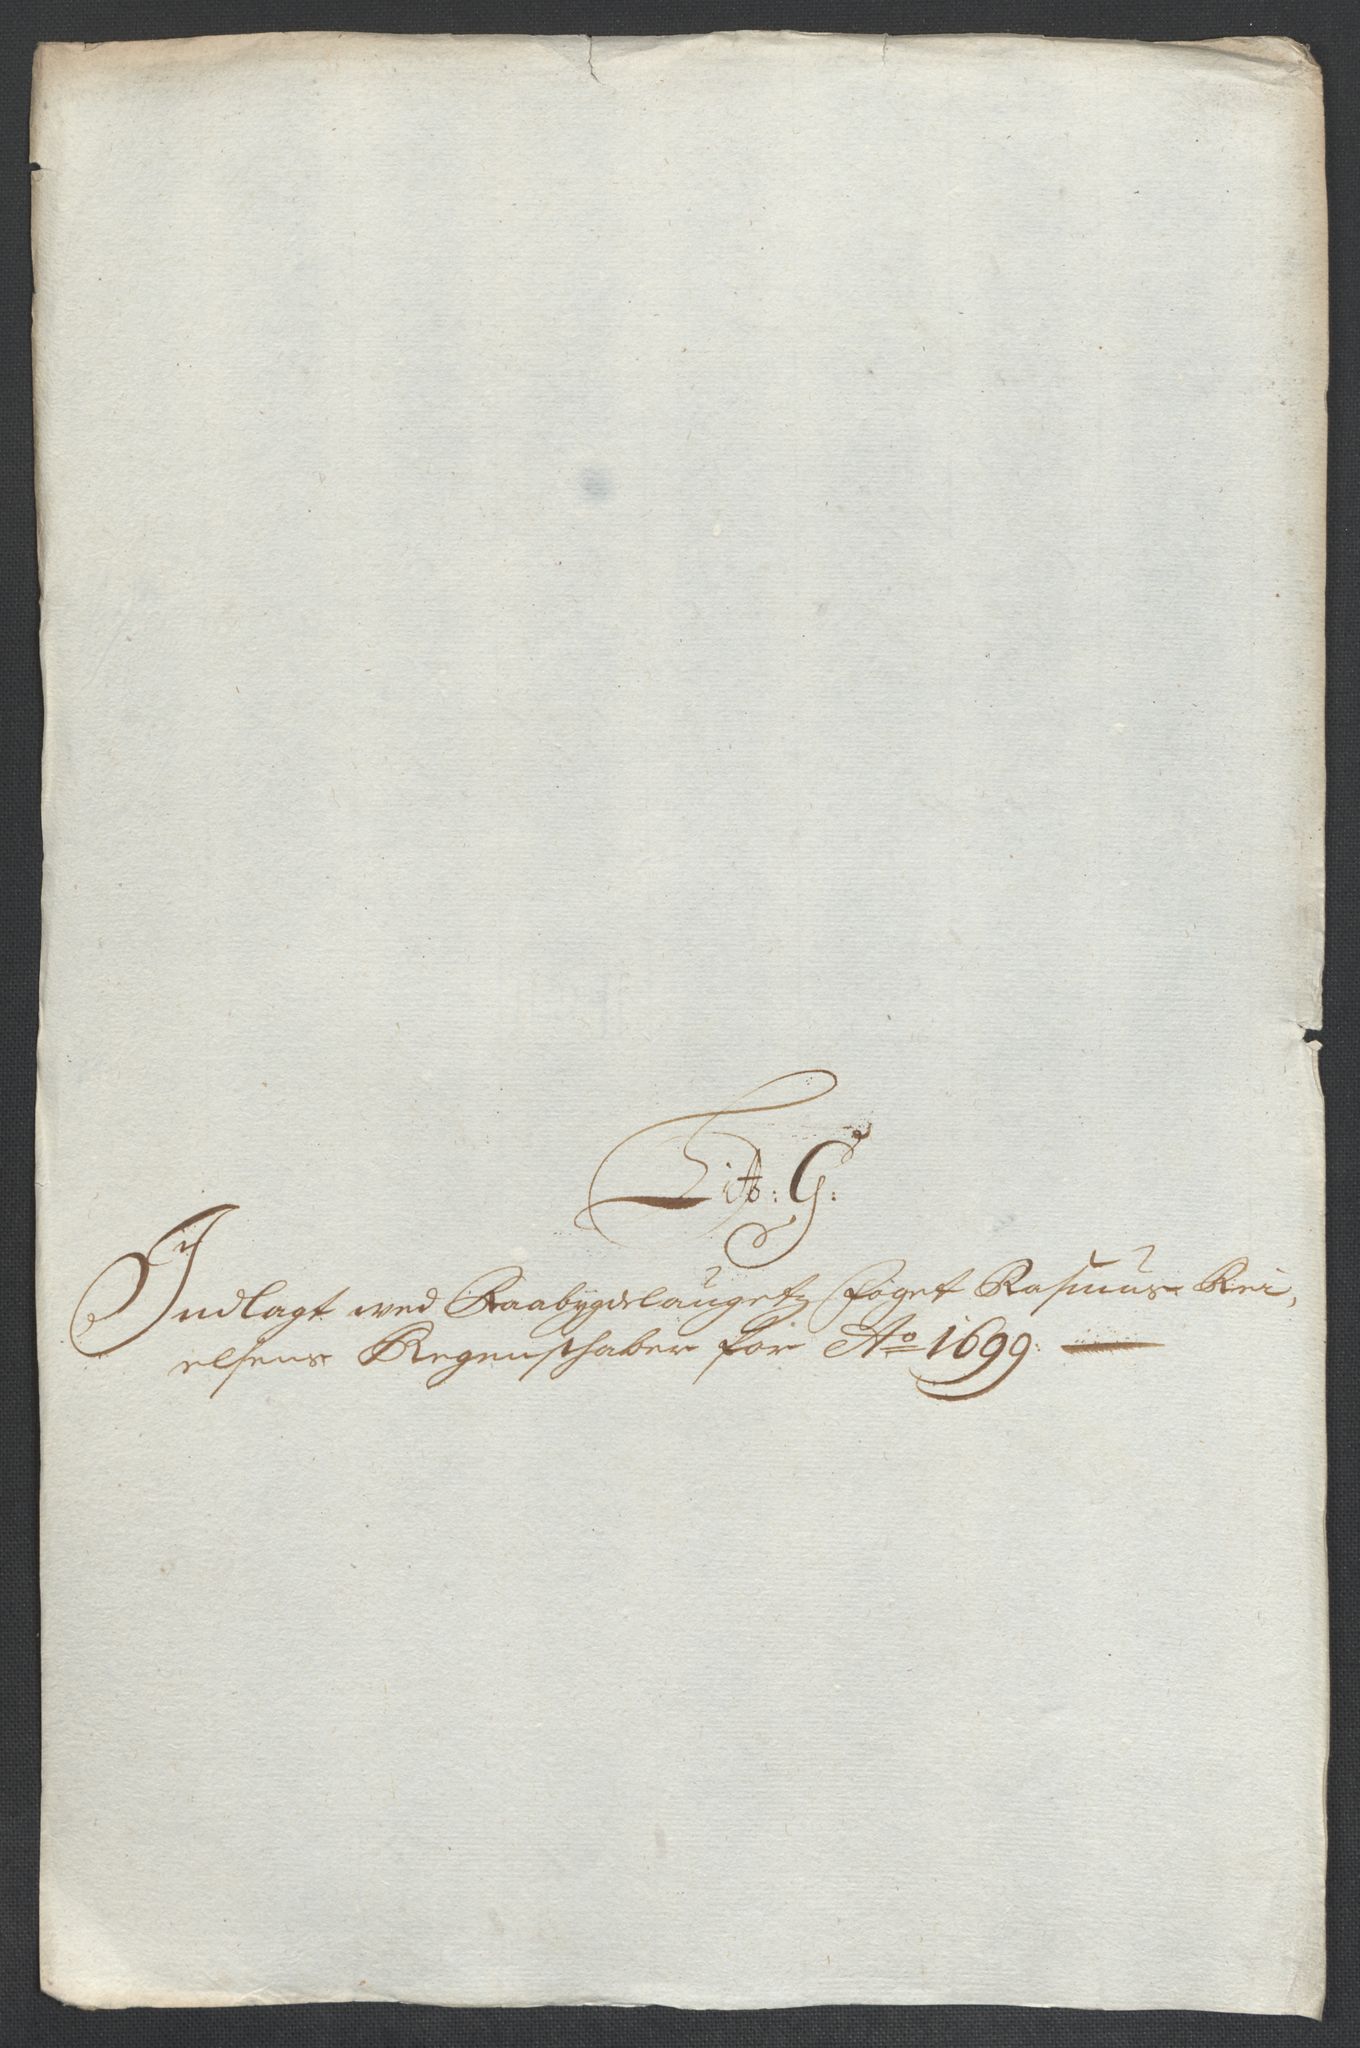 Lit: G:
Indlagt wed Raabygdelaugetz foget Rasmus Rei,
elsens Regenschaber for Ao 1699: